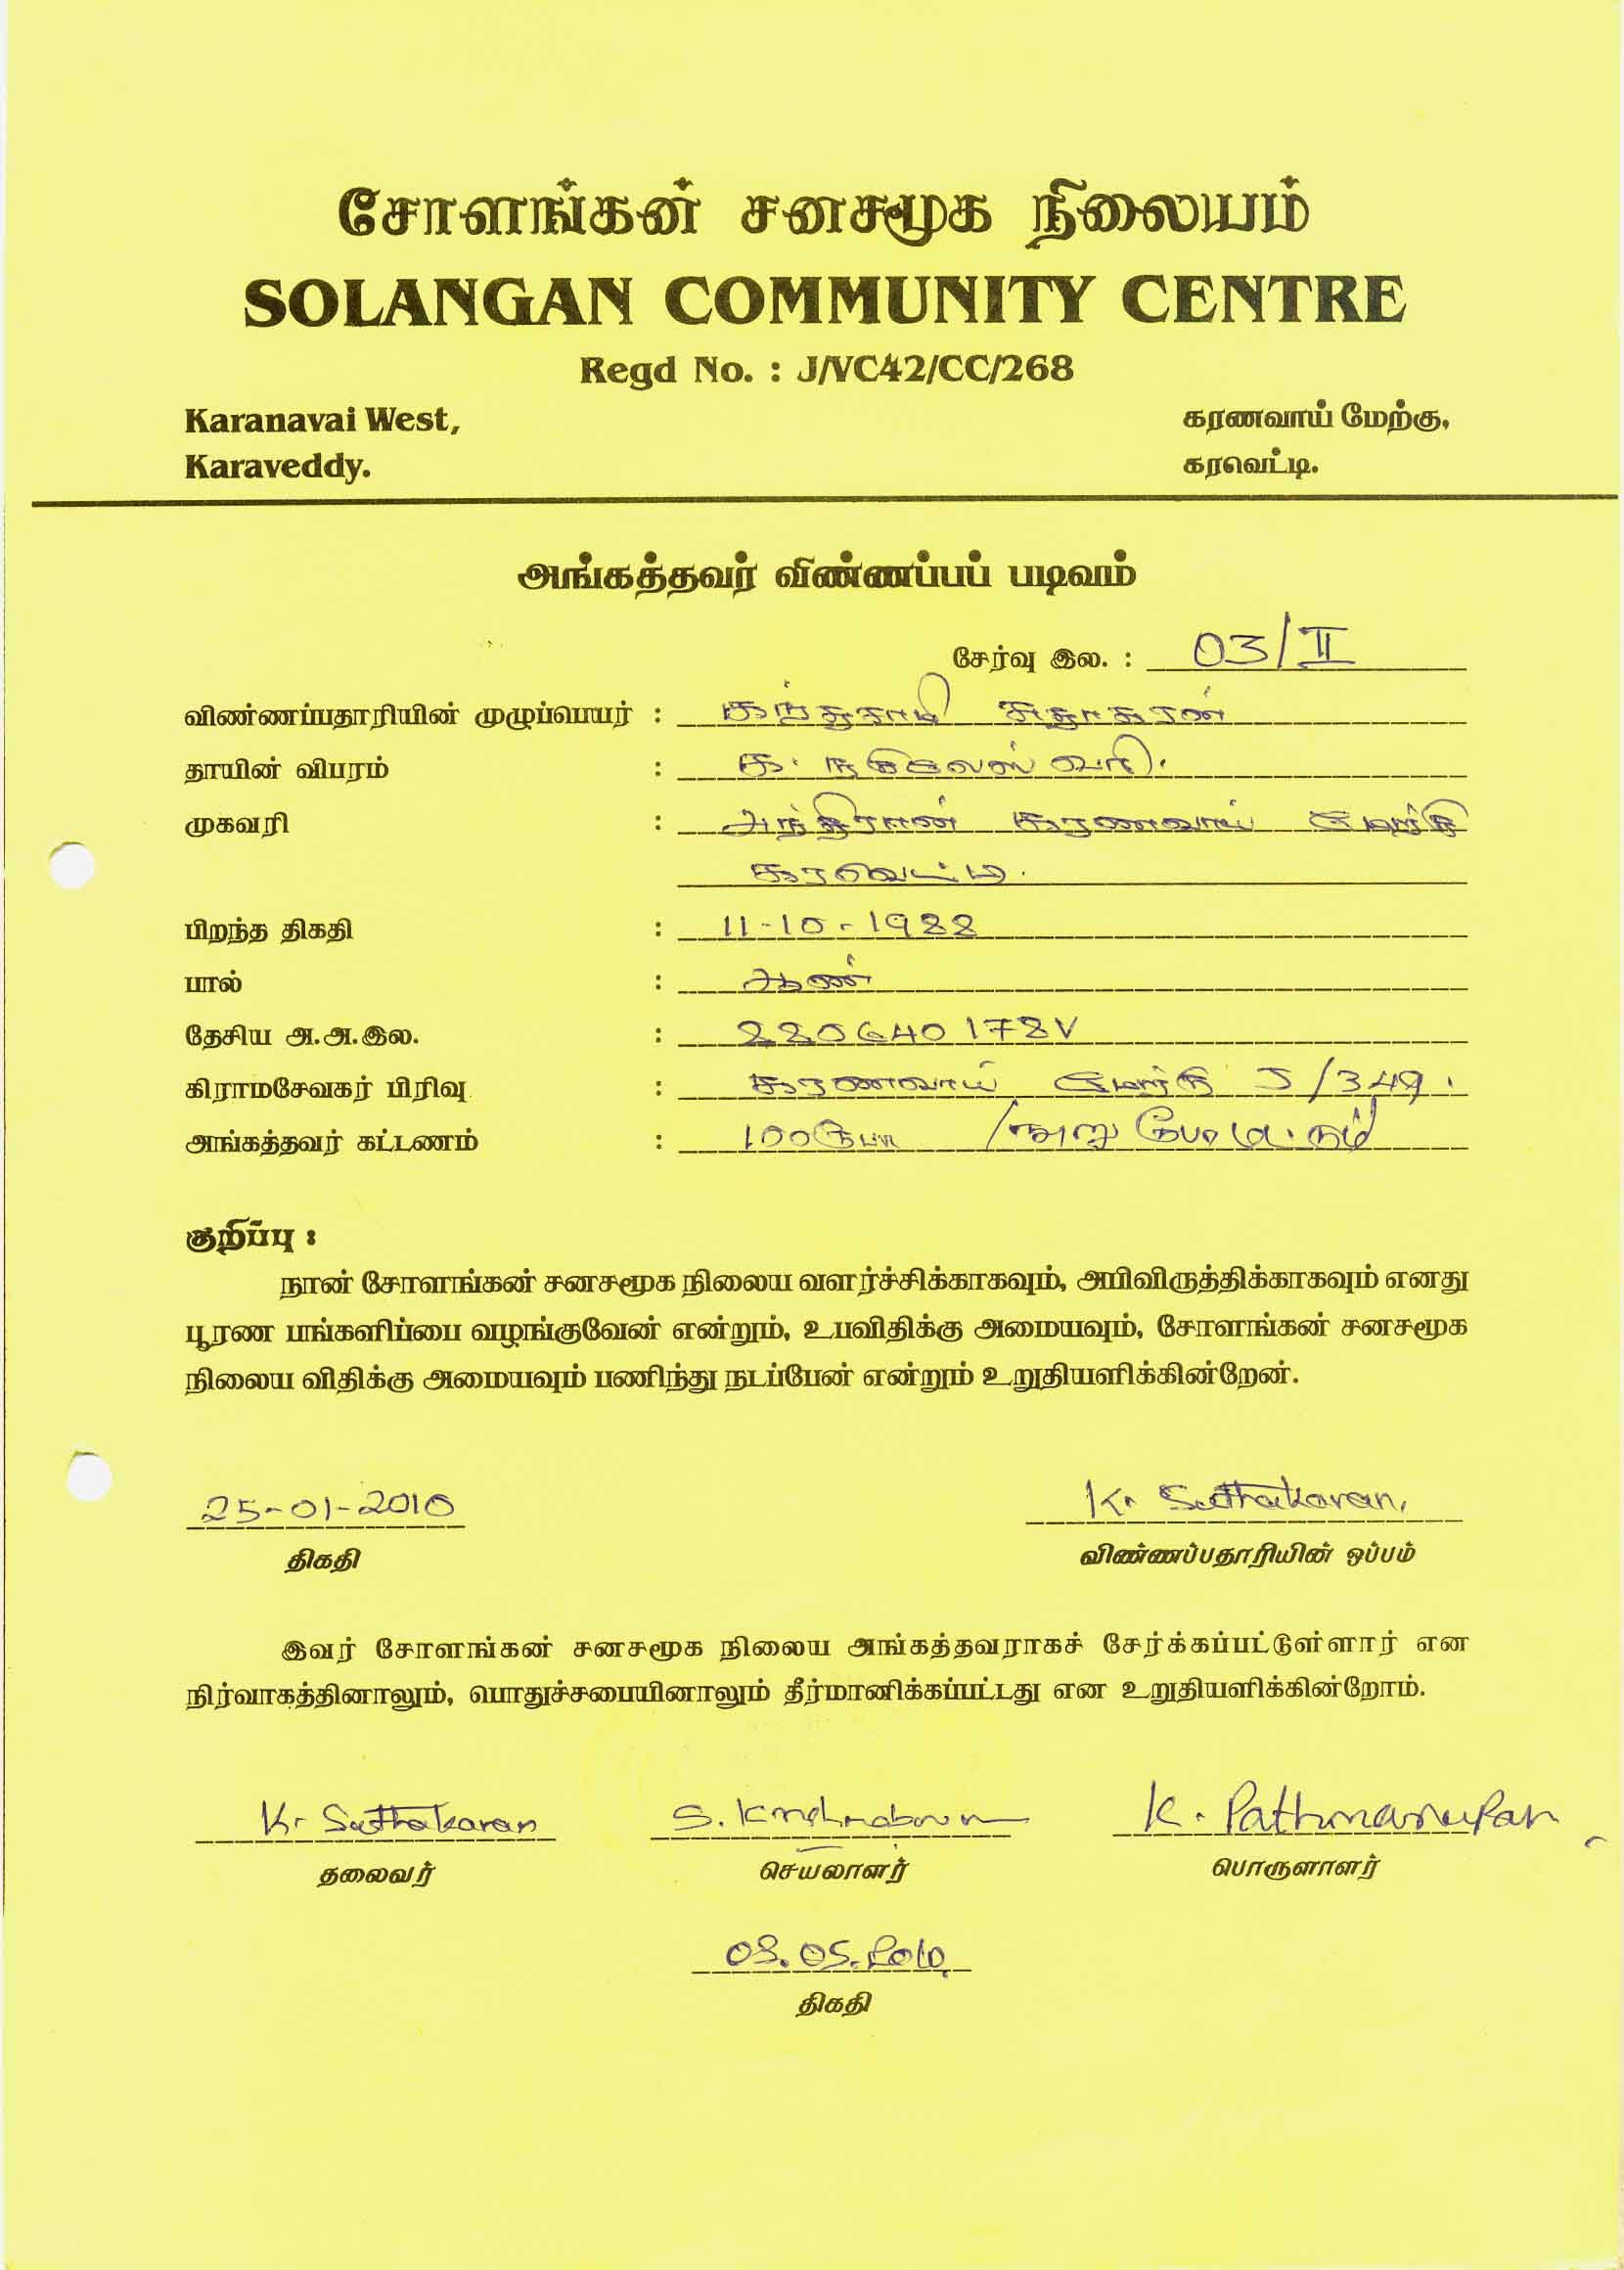 சோளங்கன் சனசமூக நிலையம்
SOLANGAN COMMUNITY CENTRE
Regd No. : J/VC42/CC/268
Karanavai West, கரணவாய் மேற்கு,
Karaveddy. கரவெட்டி.
அங்கத்தவர் விண்ணப்பப் படிவம்
சேர்வு இல. : 03/II
விண்ணப்பதாரியின் முழுப்பெயர் : கந்தசாமி சுதாகரன்
தாயின் விபரம் : க.
முகவரி : அந்திரான் கரணவாய் மேற்கு
கரவெட்டி.
பிறந்த திகதி : 11-10-1988
பால் : ஆண்
தேசிய அ.அ.இல. : 880640178V
கிராமசேவகர் பிரிவு : கரணவாய் மேற்கு J/349.
அங்கத்தவர் கட்டணம் : 100ரூபா /நூறு ரூபா மட்டும்
குறிப்பு :
நான் சோளங்கன் சனசமூக நிலைய வளர்ச்சிக்காகவும், அபிவிருத்திக்காகவும் எனது
பூரண பங்களிப்பை வழங்குவேன் என்றும், உபவிதிக்கு அமையவும், சோளங்கன் சனசமூக
நிலைய விதிக்கு அமையவும் பணிந்து நடப்பேன் என்றும் உறுதியளிக்கின்றேன்.
25-01-2010 K. Suthakaran.
திகதி விண்ணப்பதாரியின் ஒப்பம்
இவர் சோளங்கன் சனசமூக நிலைய அங்கத்தவராகச் சேர்க்கப்பட்டுள்ளார் என
நிர்வாகத்தினாலும், பொதுச்சபையினாலும் தீர்மானிக்கப்பட்டது என உறுதியளிக்கின்றோம்.
K. Suthakaran S. K. Pathmarupan
தலைவர் செயலாளர் பொருளாளர்
08.05.2010
திகதி